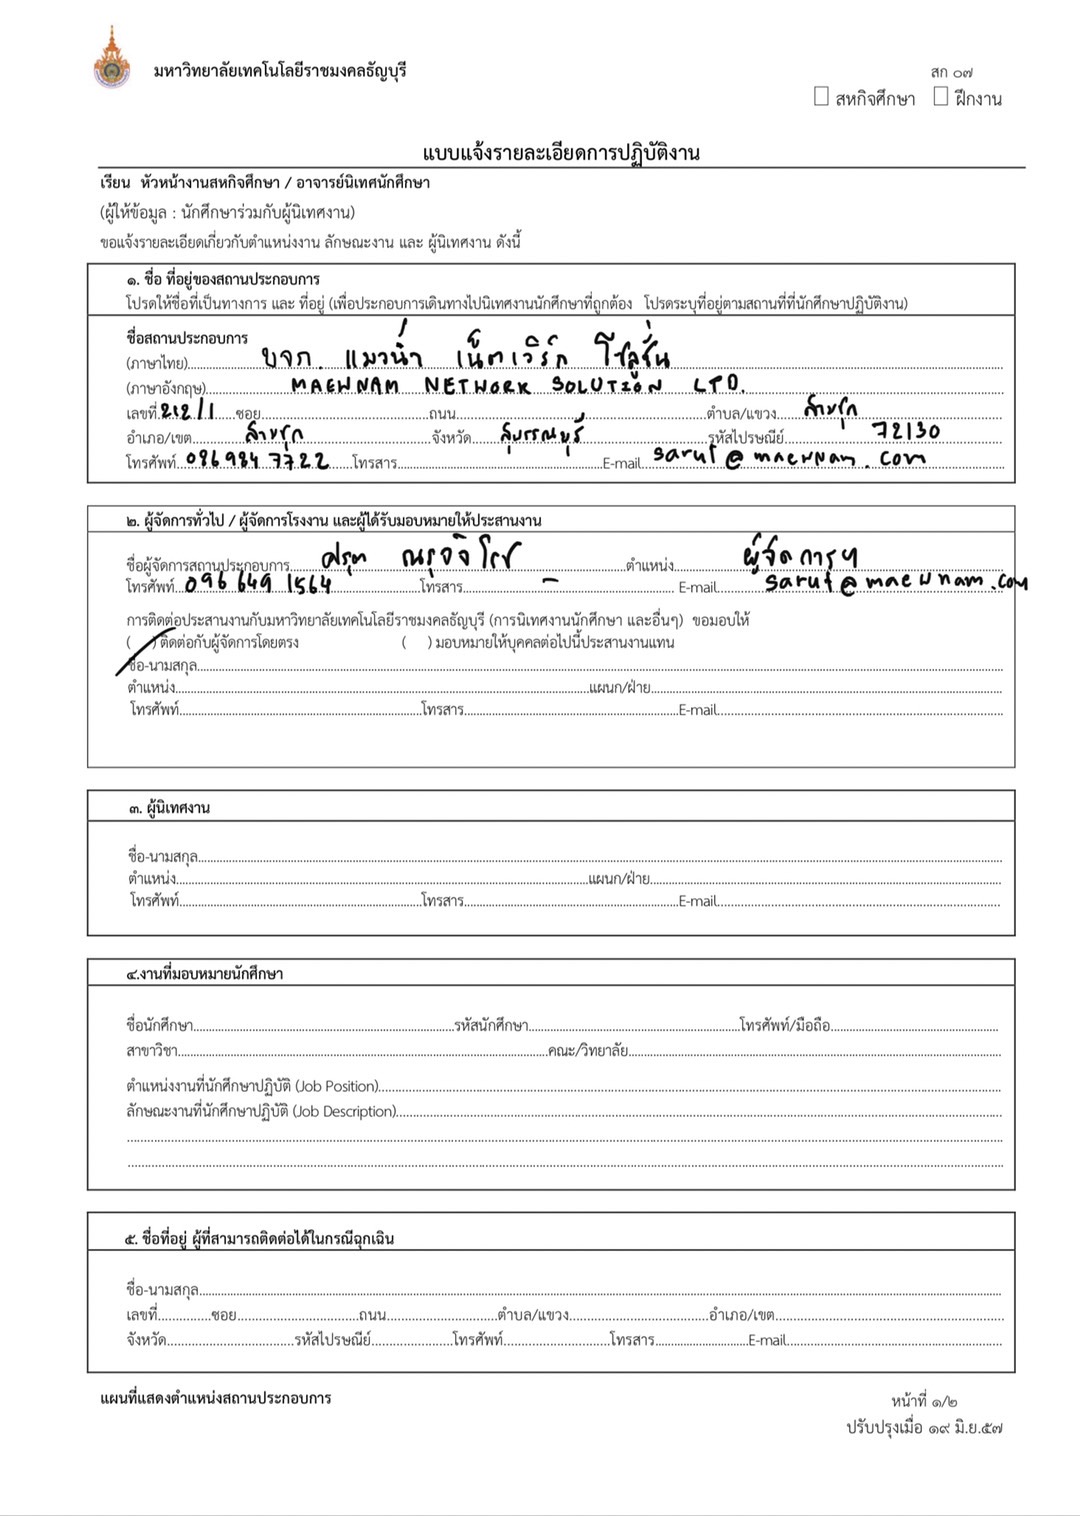 มหาวิทยาลัยเทคโนโลยีราชมงคลธัญบุรี
สก ๐๗
สหกิจศึกษา ฝึกงาน
แบบแจ้งรายละเอียดการปฏิบัติงาน
เรียน หัวหน้างานสหกิจศึกษา / อาจารย์นิเทศนักศึกษา
(ผู้ให้ข้อมูล : นักศึกษาร่วมกับผู้นิเทศงาน)
ขอแจ้งรายละเอียดเกี่ยวกับตำแหน่งงาน ลักษณะงาน และ ผู้นิเทศงาน ดังนี้
๑. ชื่อ ที่อยู่ของสถานประกอบการ
โปรดให้ชื่อที่เป็นทางการ และ ที่อยู่ (เพื่อประกอบการเดินทางไปนิเทศงานนักศึกษาที่ถูกต้อง โปรดระบุที่อยู่ตามสถานที่ที่นักศึกษาปฏิบัติงาน)
ชื่อสถานประกอบการ
(ภาษาไทย) บจก. แมวน้ำ เน็ตเวิร์ก โซลูชั่น
(ภาษาอังกฤษ) MAEWNAM NETWORK SOLUTION LTD.
เลขที่ 212/1 ซอย ถนน ตำบล/แขวง สามชุก
อำเภอ/เขต สามชุก จังหวัด สุพรรณบุรี รหัสไปรษณีย์ 72130
โทรศัพท์ 086 984 7722 โทรสาร E-mail sarut@maewnam.com
๒. ผู้จัดการทั่วไป / ผู้จัดการโรงงาน และผู้ได้รับมอบหมายให้ประสานงาน
ชื่อผู้จัดการสถานประกอบการ ศรุต ณรุจจิโรช ตำแหน่ง ผู้จัดการฯ
โทรศัพท์ 096 649 1564 โทรสาร - E-mail sarut@maewnam.com
การติดต่อประสานงานกับมหาวิทยาลัยเทคโนโลยีราชมงคลธัญบุรี (การนิเทศงานนักศึกษา และอื่นๆ) ขอมอบให้
( / ) ติดต่อกับผู้จัดการโดยตรง ( ) มอบหมายให้บุคคลต่อไปนี้ประสานงานแทน
ชื่อ-นามสกุล
ตำแหน่ง แผนก/ฝ่าย
โทรศัพท์ โทรสาร E-mail
๓. ผู้นิเทศงาน
ชื่อ-นามสกุล
ตำแหน่ง แผนก/ฝ่าย
โทรศัพท์ โทรสาร E-mail
๔.งานที่มอบหมายนักศึกษา
ชื่อนักศึกษา รหัสนักศึกษา โทรศัพท์/มือถือ
สาขาวิชา คณะ/วิทยาลัย
ตำแหน่งงานที่นักศึกษาปฏิบัติ (Job Position)
ลักษณะงานที่นักศึกษาปฏิบัติ (Job Description)
๕. ชื่อที่อยู่ ผู้ที่สามารถติดต่อได้ในกรณีฉุกเฉิน
ชื่อ-นามสกุล
เลขที่ ซอย ถนน ตำบล/แขวง อำเภอ/เขต
จังหวัด รหัสไปรษณีย์ โทรศัพท์ โทรสาร E-mail
แผนที่แสดงตำแหน่งสถานประกอบการ
หน้าที่ ๑/๒
ปรับปรุงเมื่อ ๑๙ มิ.ย.๕๗